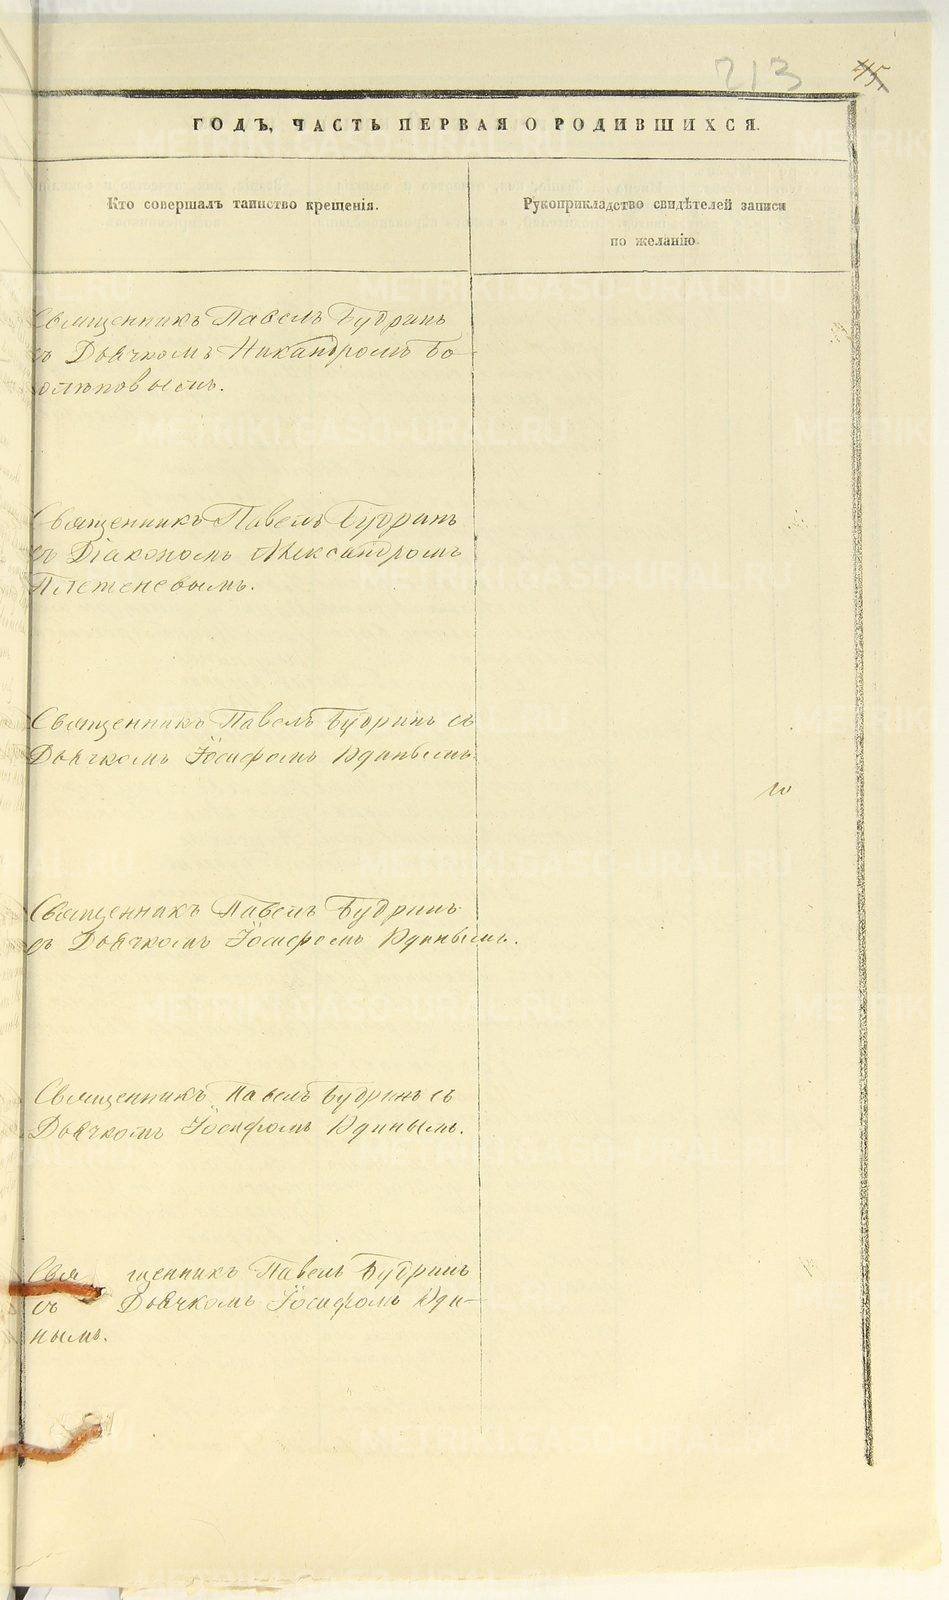 213 45
ГОДЪ, ЧАСТЬ ПЕРВАЯ О РОДИВШИХСЯ.
Кто совершалъ таинство крещенія.
Рукоприкладство свидѣтелей записи
по желанію.
Священникъ Павелъ Будринъ
съ Дьячкомъ Никандромъ Бо-
Священникъ Павелъ Будринъ
съ Діакономъ Александромъ
Плетеневымъ.
Священникъ Павелъ Будринъ съ
Дьячкомъ Іосифомъ Юдинымъ
Священникъ Павелъ Будринъ
съ Дьячкомъ Іосифомъ Юдинымъ.
Священникъ Павелъ Будринъ съ
Дьячкомъ Іосифомъ Юдинымъ.
Священникъ Павелъ Будринъ
съ Дьячкомъ Іосифомъ Юди-
нымъ.
METRIKI.GASO-URAL.RU